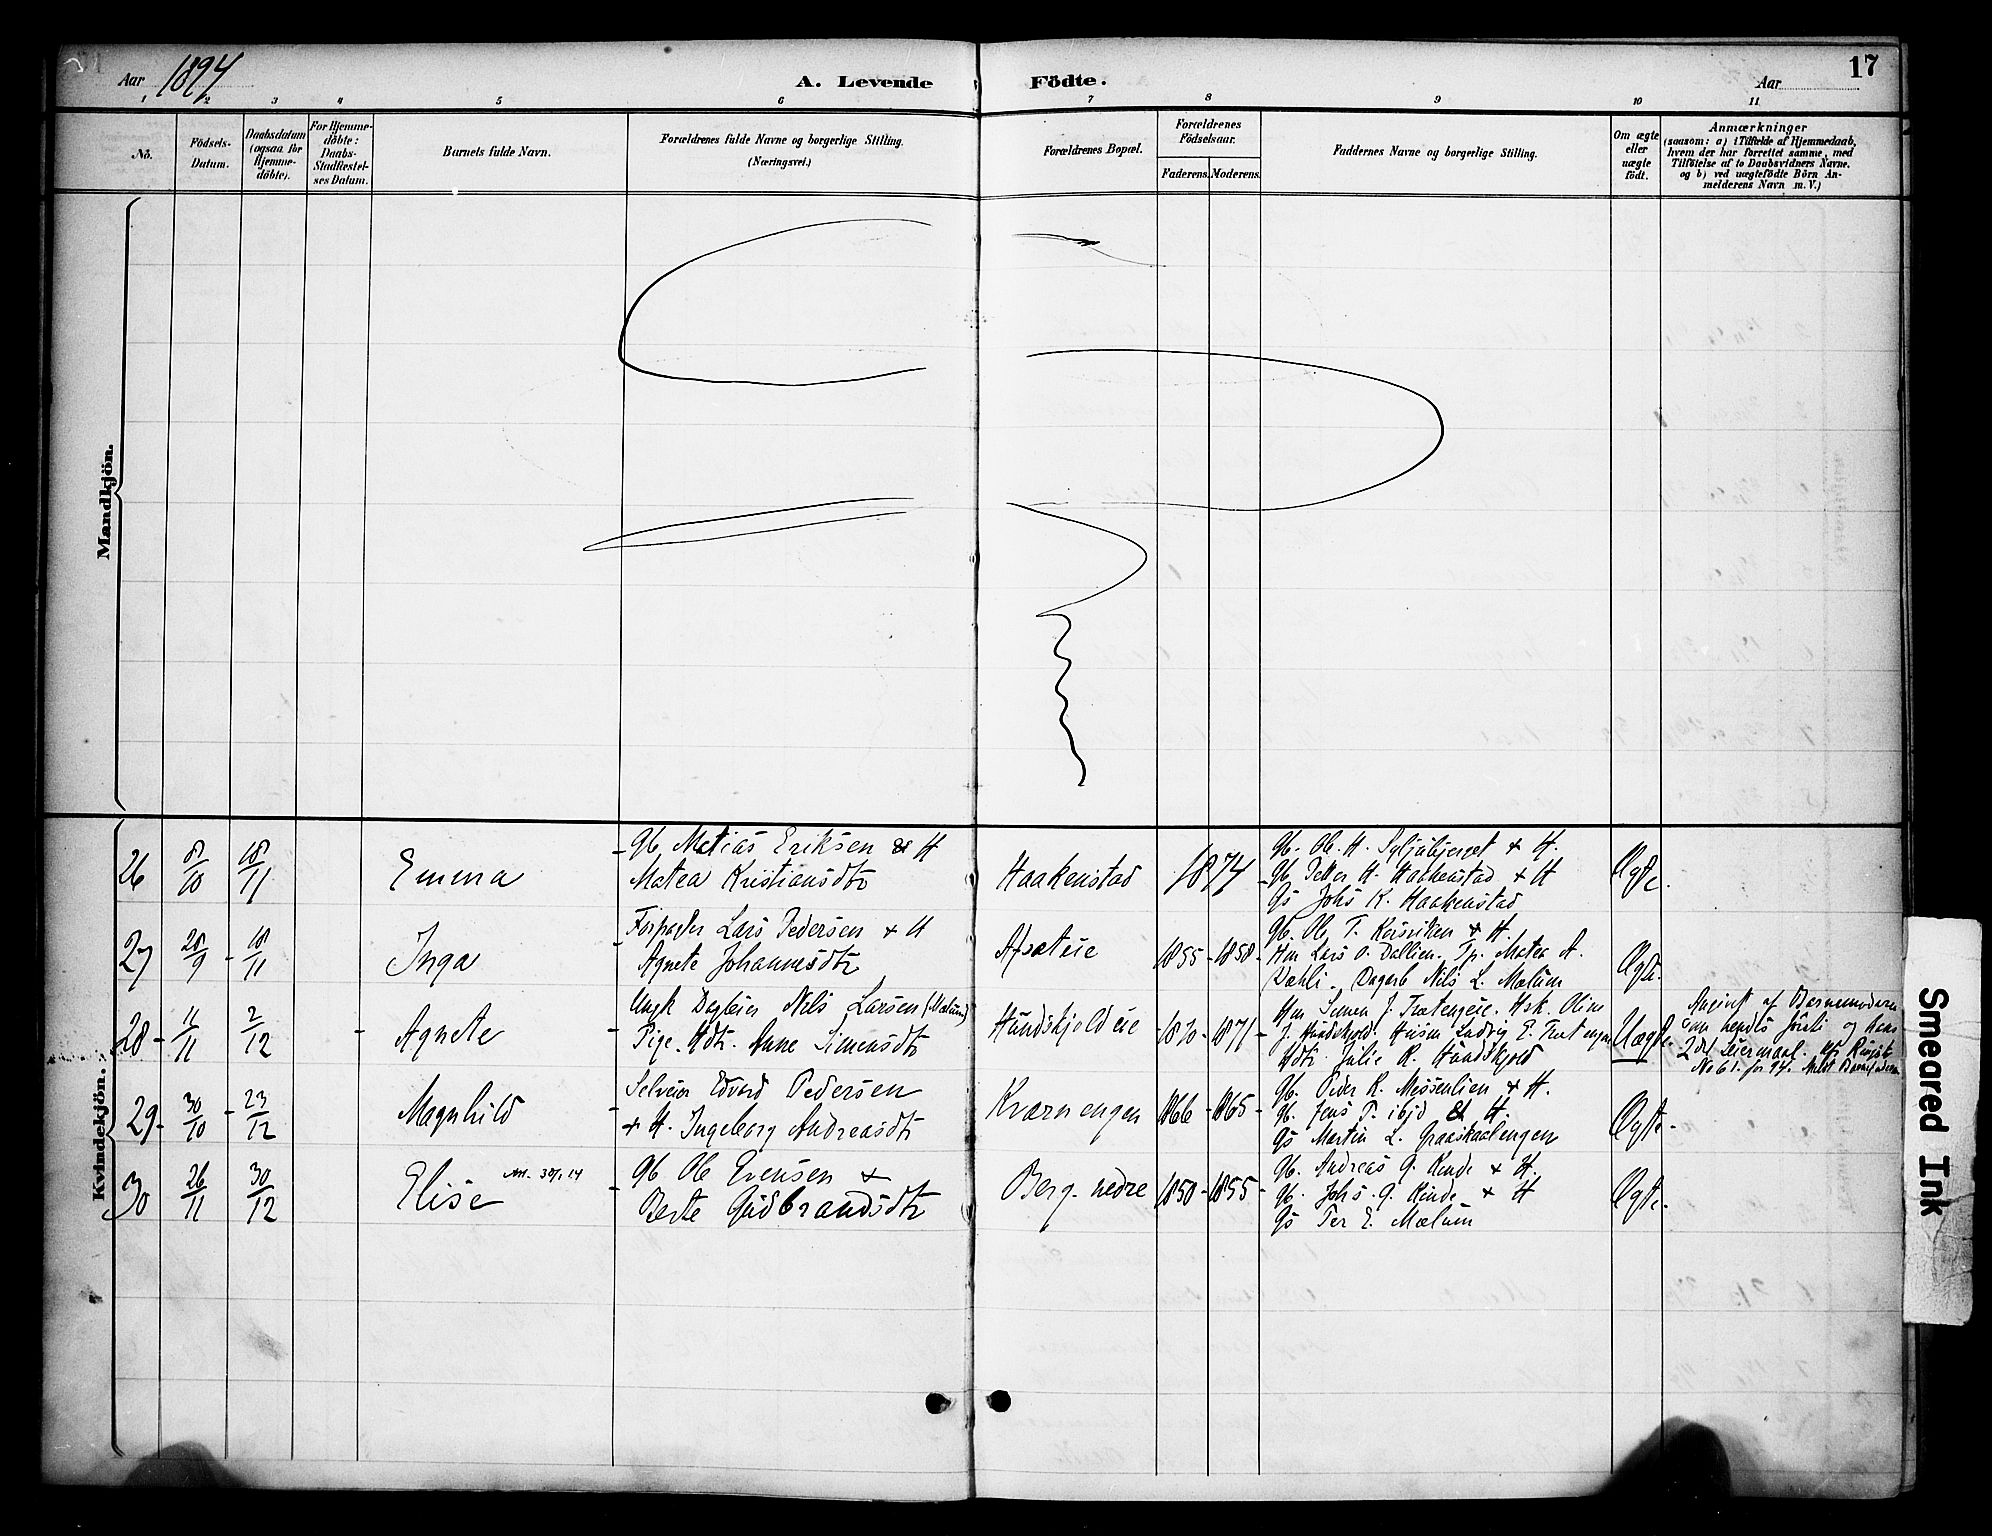 Aar 1894
A. Levende Födte.
Aar
17
1 2 3 4 5 6 7 8 9 10 11
No.
Födsels-
Datum.
Daabsdatum
(ogsaa for
Hjemme-
döbte).
For Hjemme-
döbte:
Daabs-
Stadfæstel-
ses Datum.
Barnets fulde Navn.
Forældrenes fulde Navne og borgerlige Stilling.
(Næringsvei.)
Forældrenes Bopæl.
Forældrenes
Födselsaar.
Faderens. Moderens.
Faddernes Navne og borgerlige Stilling.
Om ægte
eller
uægte
født.
Anmærkninger
(saasom: a) i Tilfælde af Hjemmedaab,
hvem der har forrettet samme, med
Tilföielse af to Daabsvidners Navne,
og b) ved uægtefödte Börn An-
melderens Navn m. V.)
Mandkjön.
Kvindekjön.
26 8/10 18/11 Emma
Gb Matias Eriksen & H
Matea Kristiansdtr
Haakenstad 1874
Gb. Ole H.
Gb Petter H. Haakenstad + H
Gs Johs K. Haakenstad
Ægte.
27 28/9 - 18/11 Inga
Forpagter Lars Pedersen + H
Agnete Johannesdtr
1855 - 1858
Gb. Ole T. + H.
Lars O. Dallien. Matea A.
Nils L. Mælum
Ægte.
28 - 11/11 2/12 - Agnete
Ungk Nils Larsen (Mælum)
Pige. Hdtr. Anne Simensdtr
Hundskjoldeie 1870 - 1871
Simen J. Oline
J. Hundskjold. Ludvig E.
Hdtr. Julie K. Hundskjold
Uægte.
Angivet af Barnemoderen
som hendes förste og hans
2det Leiermaal.
No 61. for 94.
29 - 30/10 - 23/12 Magnhild
Selveier Edvard Pedersen
+ H. Ingeborg Andreasdtr
Kværnengen 1866 - 1865
Gb. Peder K. Messenlien + H.
Gb. Jens P. ibid & H.
Gs Martin L. Graaskaalengen
Ægte.
30 26/11 30/12 Elise
Gb Ole Evensen +
Berte Gudbrandsdtr
Berg nedre 1850 - 1855
Gb. Andreas G. Rinde + H.
Gb. Johs. G. Rinde + H
Gs Per E. Mælum
Ægte.
Smeared Ink